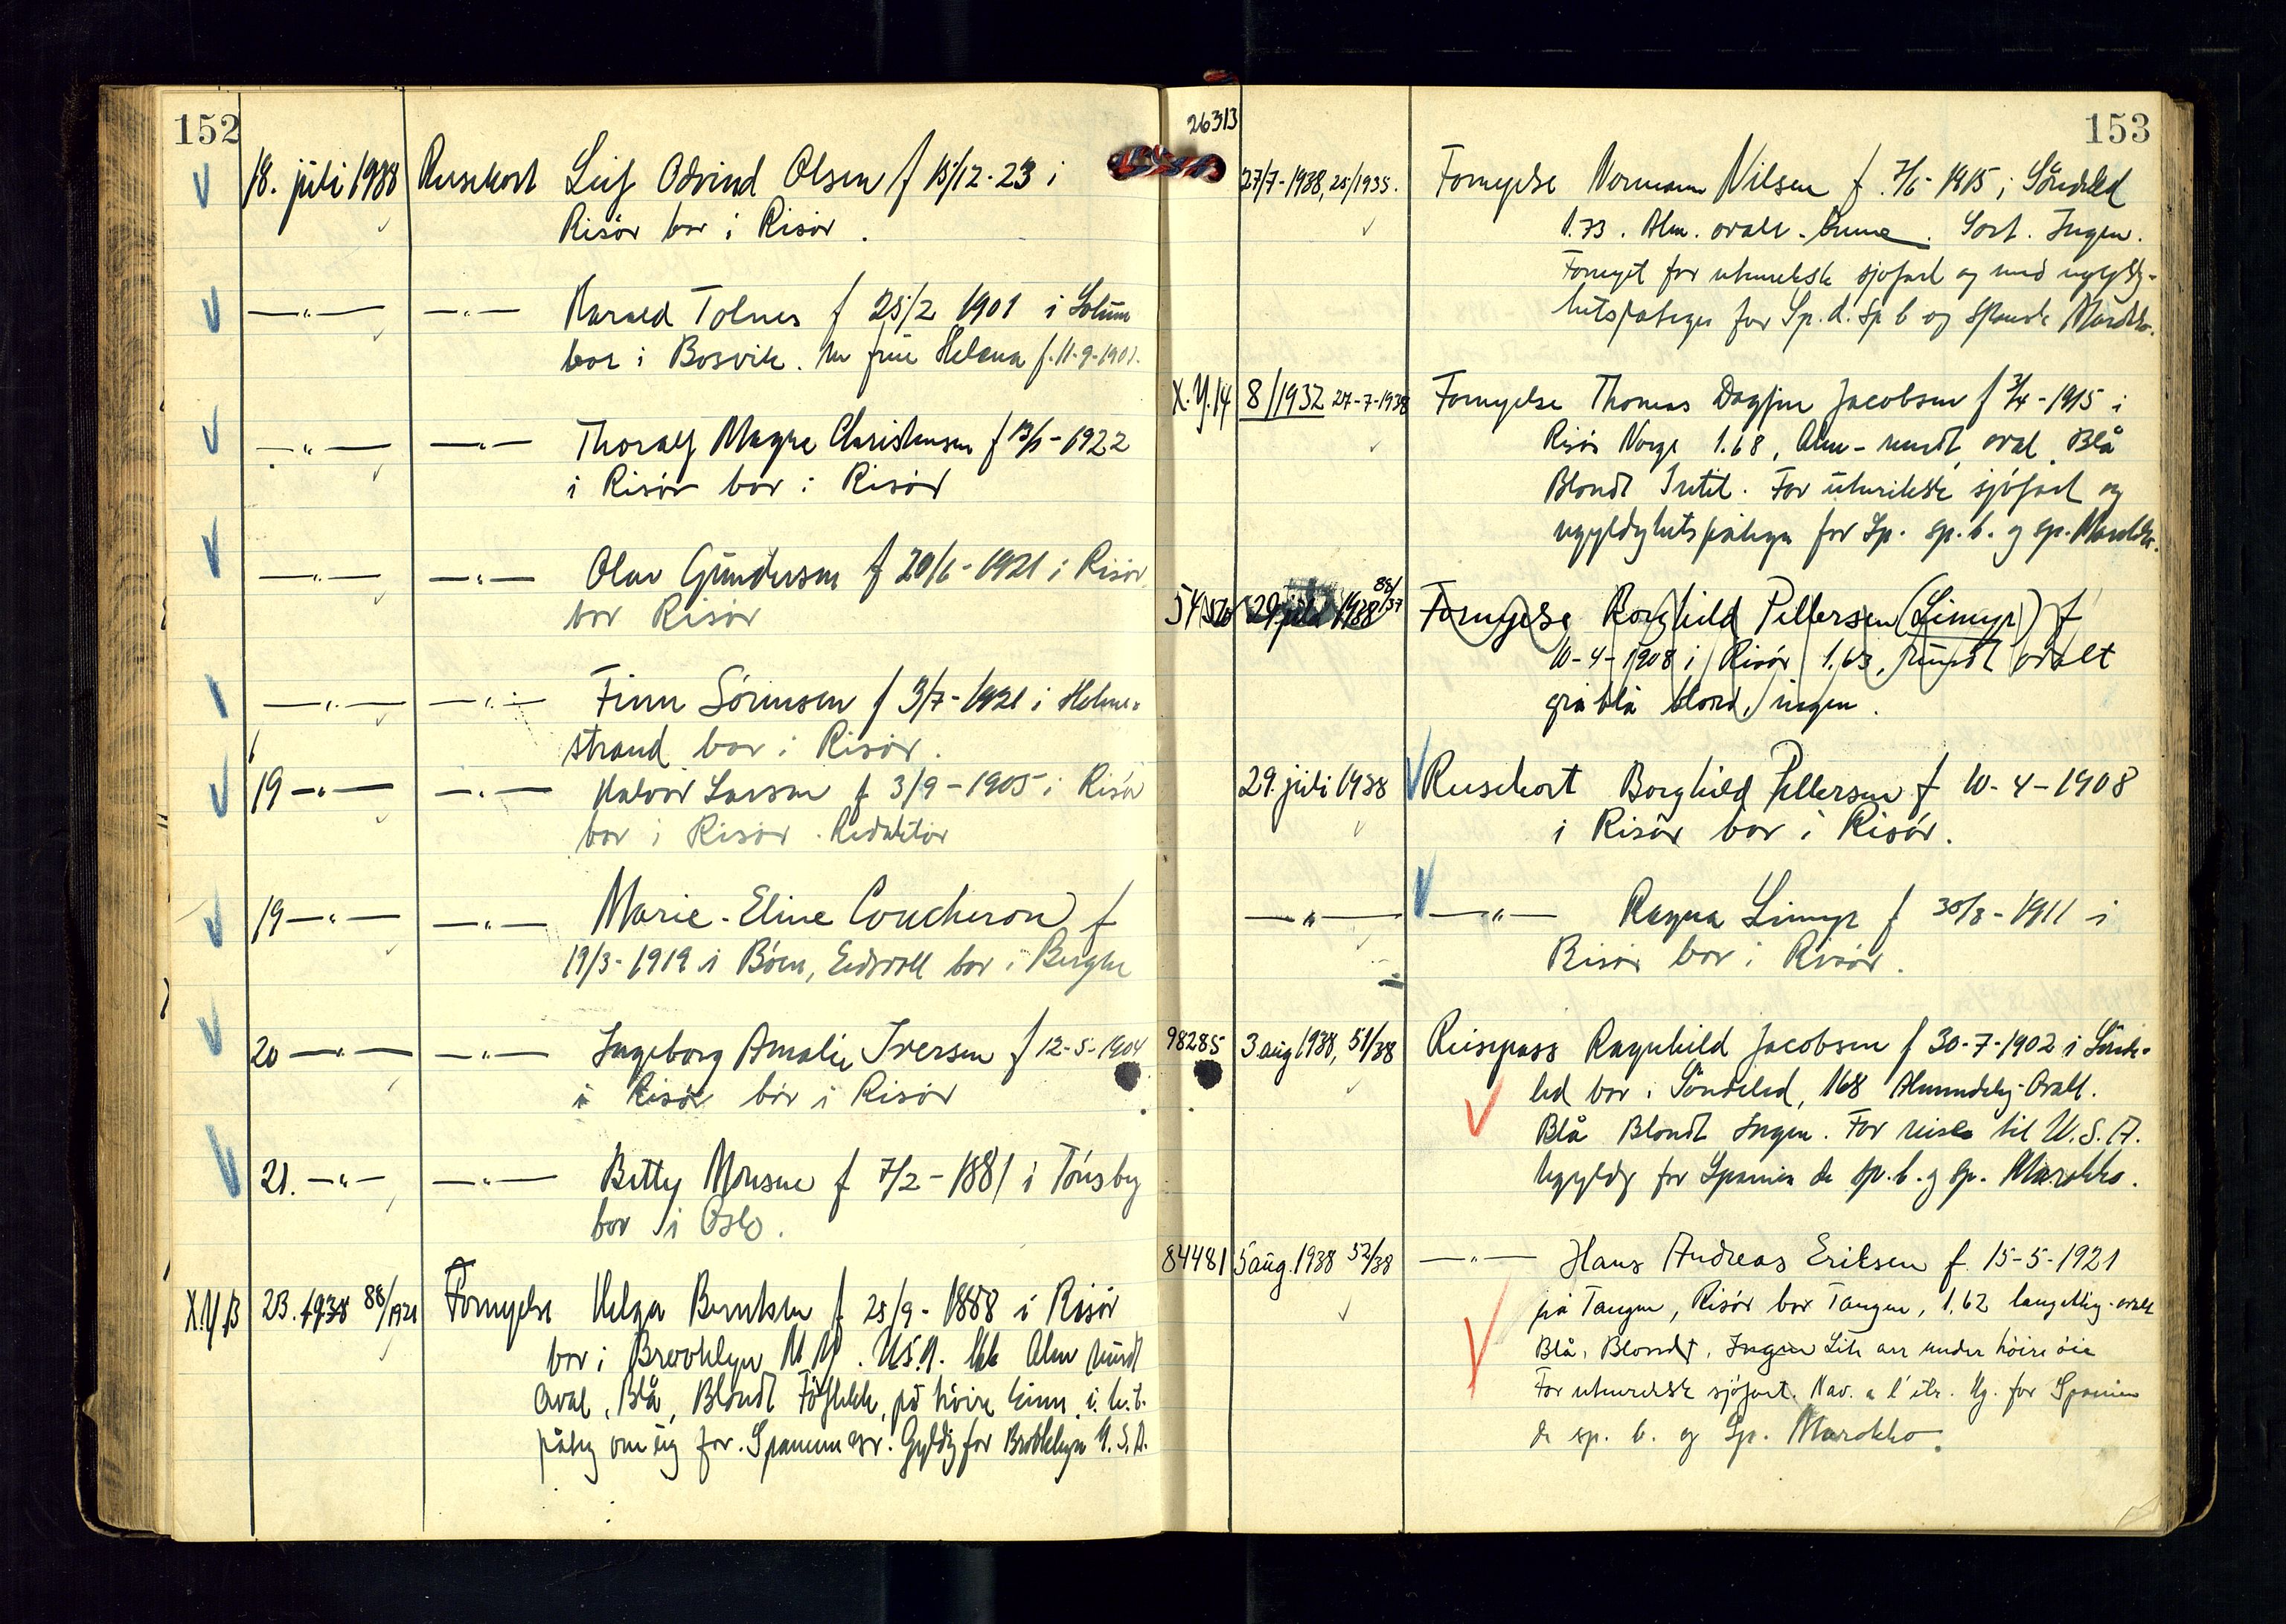 152
18. juli 1938 Reisekort Leif Odvind Olsen f 15/12-23 i
Risör bor i Risör.
—"— —"— Harald Tolnes f 25/2 1901 i Solum
bor i Bosvik. frue Helena f. 11-9-1901.
—"— —"— Thoralf Magne Christensen f 1922
i Risör bor i Risör
—"— —"— Olav Gundersen f 20/6-1921 i Risör
bor Risör
—"— —"— Finn Sörensen f 3/7-1921 i Holme-
strand bor i Risör.
19 —"— —"— Halvor Larsen f 3/9-1905 i Risör
bor i Risör. Redaktör
19 —"— —"— Marie-Eline Coucheron f
19/3-1919 i Böen, Eidsvoll bor i
20 —"— —"— Ingeborg Amalie Iversen f 12-5-1904
i Risör bor i Risör
21. —"— —"— Betty Monsen f 7/2-1881 i Tönsberg
bor i Oslo.
X.Y.13 23. 1938 88/1921 Fornyelse Helga Berntsen f 25/9-1888 i Risör
bor i Brooklyn N.Y. U.S.A. Alm rundt
Oval, Blå, Blondt Föflekk, på höire kinn,
påteg om ug for. Spanien osv. Gyldig for Brooklyn U.S.A.
153
26313 27/7-1938, 25/1935. Fornyelse Normann Nilsen f. 7/6-1915 i Söndeled
1.73. Alm. ovalt. Brune. Sort. Ingen.
Fornyet for utenriksk sjöfart og med ugyldig-
hetspategn for Sp. d. Sp b og Spansk Marokko.
X.Y.14 8/1932 27-7-1938 Fornyelse Thomas Dagfinn Jacobsen f 3/4-1915 i
Risör Norge 1.68, Alm-rundt, oval, Blå
Blondt Intet. For utenriksk sjöfart og
ugyldighetspåtegn for Sp. sp. b. og sp. Marokko.
29 juli 1938 88/37 Fornyelse Borghild Pettersen (Limyr) f
10-4-1908 i Risör 1,63, rundt ovalt
grå blå blond, ingen.
29. juli 1938 Reisekort Borghild Pettersen f 10-4-1908
i Risör bor i Risör.
—"— —"— Ragna Limyr f 30/8-1911 i
Risör bor i Risör.
98285 3 aug 1938, 51/38 Reisepass Ragnhild Jacobsen f 30-7-1902 i Sönde-
led bor i Söndeled, 168 Almindelig-Ovalt.
Blå Blondt Ingen. For reise til U.S.A.
Ugyldig for Spanien de sp. b. og sp. Marokko.
84481 5 aug. 1938 52/38 —"— Hans Andreas Eriksen f. 15-5-1921
på Tangen, Risör bor Tangen, 1,62 langaktig-ovalt
Blå, Blondt, Ingen Lite arr under höire öie
For utenriksk sjöfart. Nav. a l'etr. Ug. for Spanien
de sp. b. og Sp. Marokko.